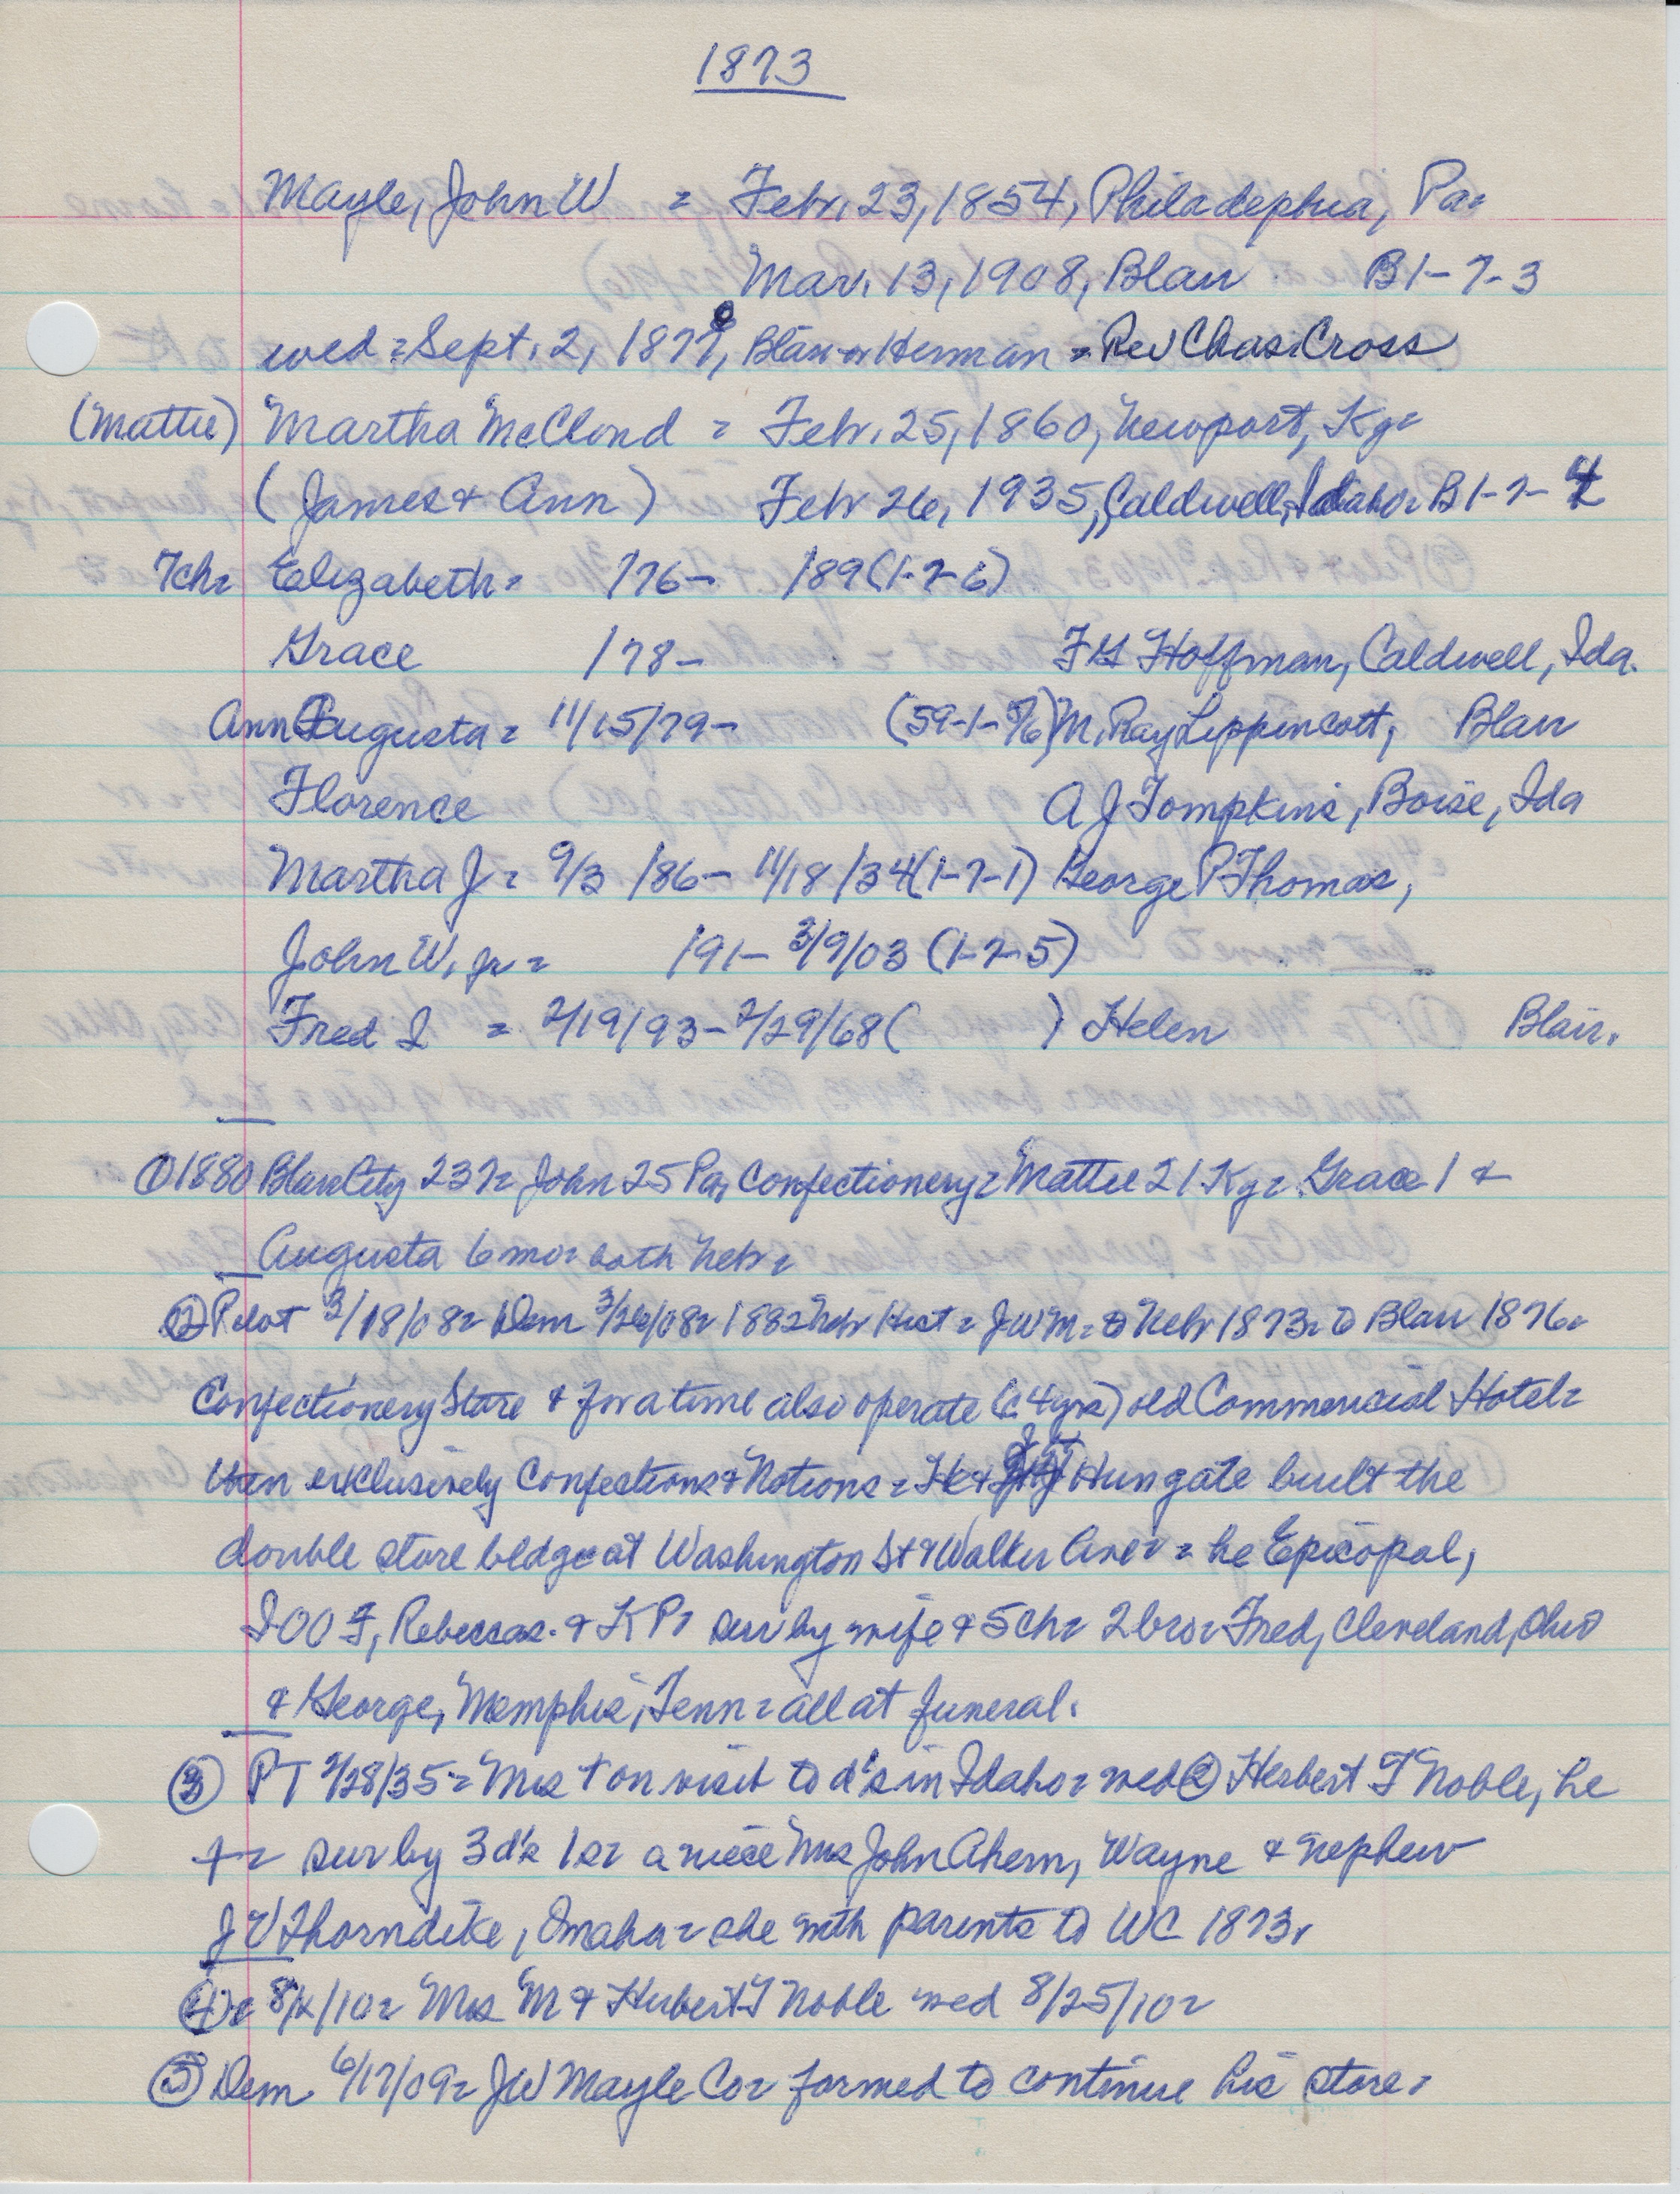 1873
Mayle, John W = Feb. 23, 1854, Philadephia, Pa=
Mar. 13, 1908, Blair B1-7-3
wed = Sept. 2, 1877, Blair or Herman = Rev Chas. Cross
(Mattie) Martha McCloud = Feb. 25, 1860, Newport, Ky=
(James & Ann) Feb 26, 1935, Caldwell, Idaho= B1-7-4
7ch= Elizabeth= /76- /89 (1-7-6)
Grace /78- F G Hoffman, Caldwell, Ida.
Ann Augusta = 11/15/79- (59-1-5/6) M. Ray Lippincott, Blair
Florence A J Tompkins, Boise, Ida
Martha J = 9/3 /86- 11/18/34 (1-7-1) George P Thomas,
John W, jr = /91- 3/9/03 (1-7-5)
Fred I = 2/19/93- 2/29/68 ( ) Helen Blair.
① 1880 Blair City 237= John 25 Pa, Confectionery= Mattie 21 Ky= Grace 1 &
Augusta 6 mo= both Neb=
② Pilot 3/18/08= Dem 3/26/08= 1882 Neb Hist = J W M= to Neb 1873= to Blair 1876=
Confectionery Store & for a time also operate (c 4 yrs) old Commercial Hotel=
then exclusively Confections & Notions = He & J J Hungate built the
double store bldg at Washington St & Walker Ave = he Epicopal,
IOOF, Rebeccas. & KP= sur by wife & 5 ch= 2 bro= Fred, Cleveland, Ohio
& George, Memphis, Tenn= all at funeral.
③ PT 2/28/35= Mrs † on visit to d's in Idaho= wed ② Herbert T Noble, he
†= sur by 3 d's 1 s= a niece Mrs John Ahern, Wayne & nephew
J W Thorndike, Omaha= she with parents to WC 1873.
④ 8/ /10= Mrs M & Hubert T Noble wed 8/25/10=
⑤ Dem 6/17/09= JW Mayle Co= formed to continue his store=